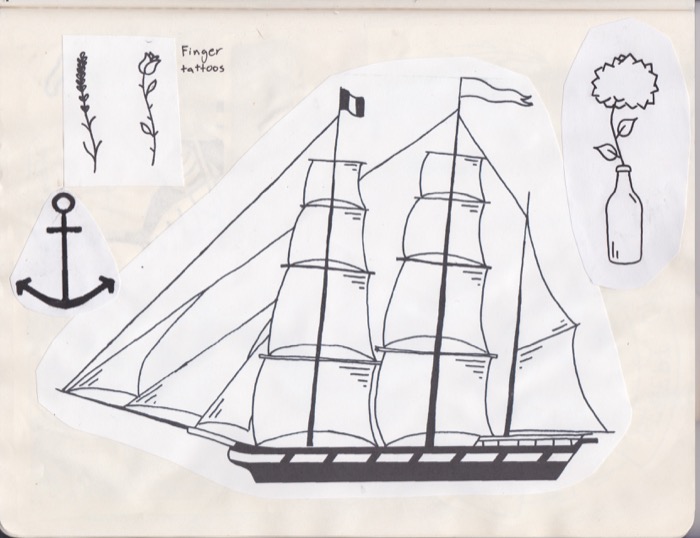 Finger
tattoos